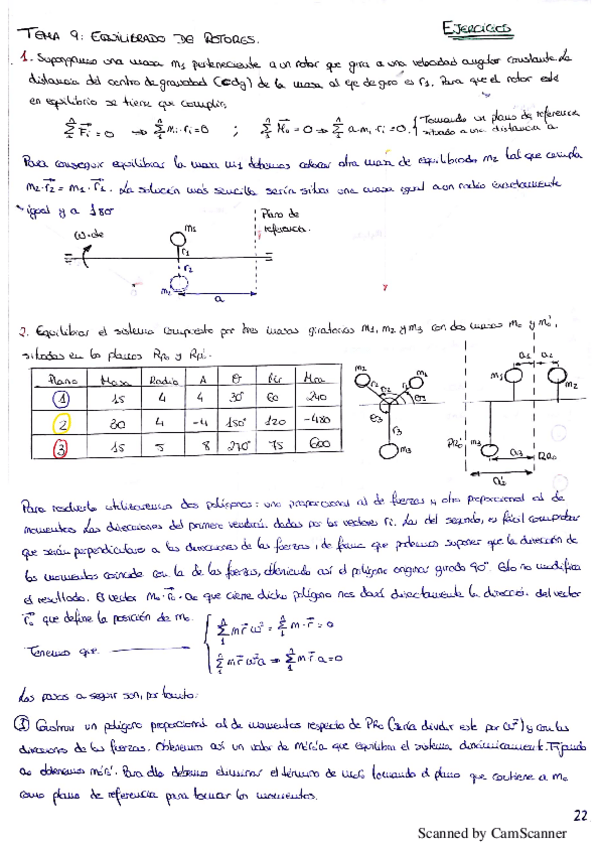 EJERCICIOS
TEMA 9: EQUILIBRADO DE ROTORES.
1. Supongamos una masa m₁ perteneciente a un rotor que gira a una velocidad angular constante. La
distancia del centro de gravedad (cdg) de la masa al eje de giro es r₁. Para que el rotor esté
en equilibrio se tiene que cumplir;
Σ F⃗i = 0 ⇒ Σ mi·ri = 0 ; Σ M⃗o = 0 ⇒ Σ a·mi·ri = 0. { Tomando un plano de referencia
situado a una distancia a
Para conseguir equilibrar la masa m₁ debemos colocar otra masa de equilibrado, m₂ tal que cumpla
m₂·r⃗₂ = m₁·r⃗₁. La solución más sencilla sería situar una masa igual a un radio exactamente
igual y a 180º
Plano de
referencia.
ω=cte
m₁
r₁
r₂
m₂
a
2. Equilibrar el sistema compuesto por tres masas giratorias m₁, m₂ y m₃ con dos masas mo y mo',
situadas en los planos Rpo y Rpo'.
Plano Masa Radio A θ Mr Mra
1 15 4 4 30º 60 240
2 30 4 -4 150º 120 -480
3 15 5 8 270º 75 600
m₂ m₁ r₂ r₁ θ₂ θ₃ r₃ m₃
a₁ a₂ m₁ m₂ m₃ a₃ PRo' PRo ao'
Para resolverlo utilizaremos dos polígonos: uno proporcional al de fuerzas y otro proporcional al de
momentos. Las direcciones del primero vendrán dadas por los vectores ri. Las del segundo, es fácil comprobar
que serán perpendiculares a las direcciones de las fuerzas, de forma que podemos suponer que la dirección de
los momentos coincide con la de las fuerzas, obteniendo así el polígono original girado 90º. Esto no modifica
el resultado. El vector mo·r⃗o·ao que cierre dicho polígono nos dará directamente la dirección del vector
r⃗o que define la posición de mo.
Tenemos que
Σ m r⃗ ω² = Σ m·r⃗ = 0
Σ m r⃗ ω² a ⇒ Σ m r⃗ a = 0
Los pasos a seguir son, por tanto:
① Construir un polígono proporcional al de momentos respecto de PRo (sería dividir este por ω²) y con las
direcciones de las fuerzas. Obtenemos así un valor de mo'ro'a que equilibra el sistema dinámicamente. Fijando
ao obtenemos mo'ro'. Para ello debemos eliminar el término de moro tomando el plano que contiene a mo
como plano de referencia para tomar los momentos.
22
Scanned by CamScanner